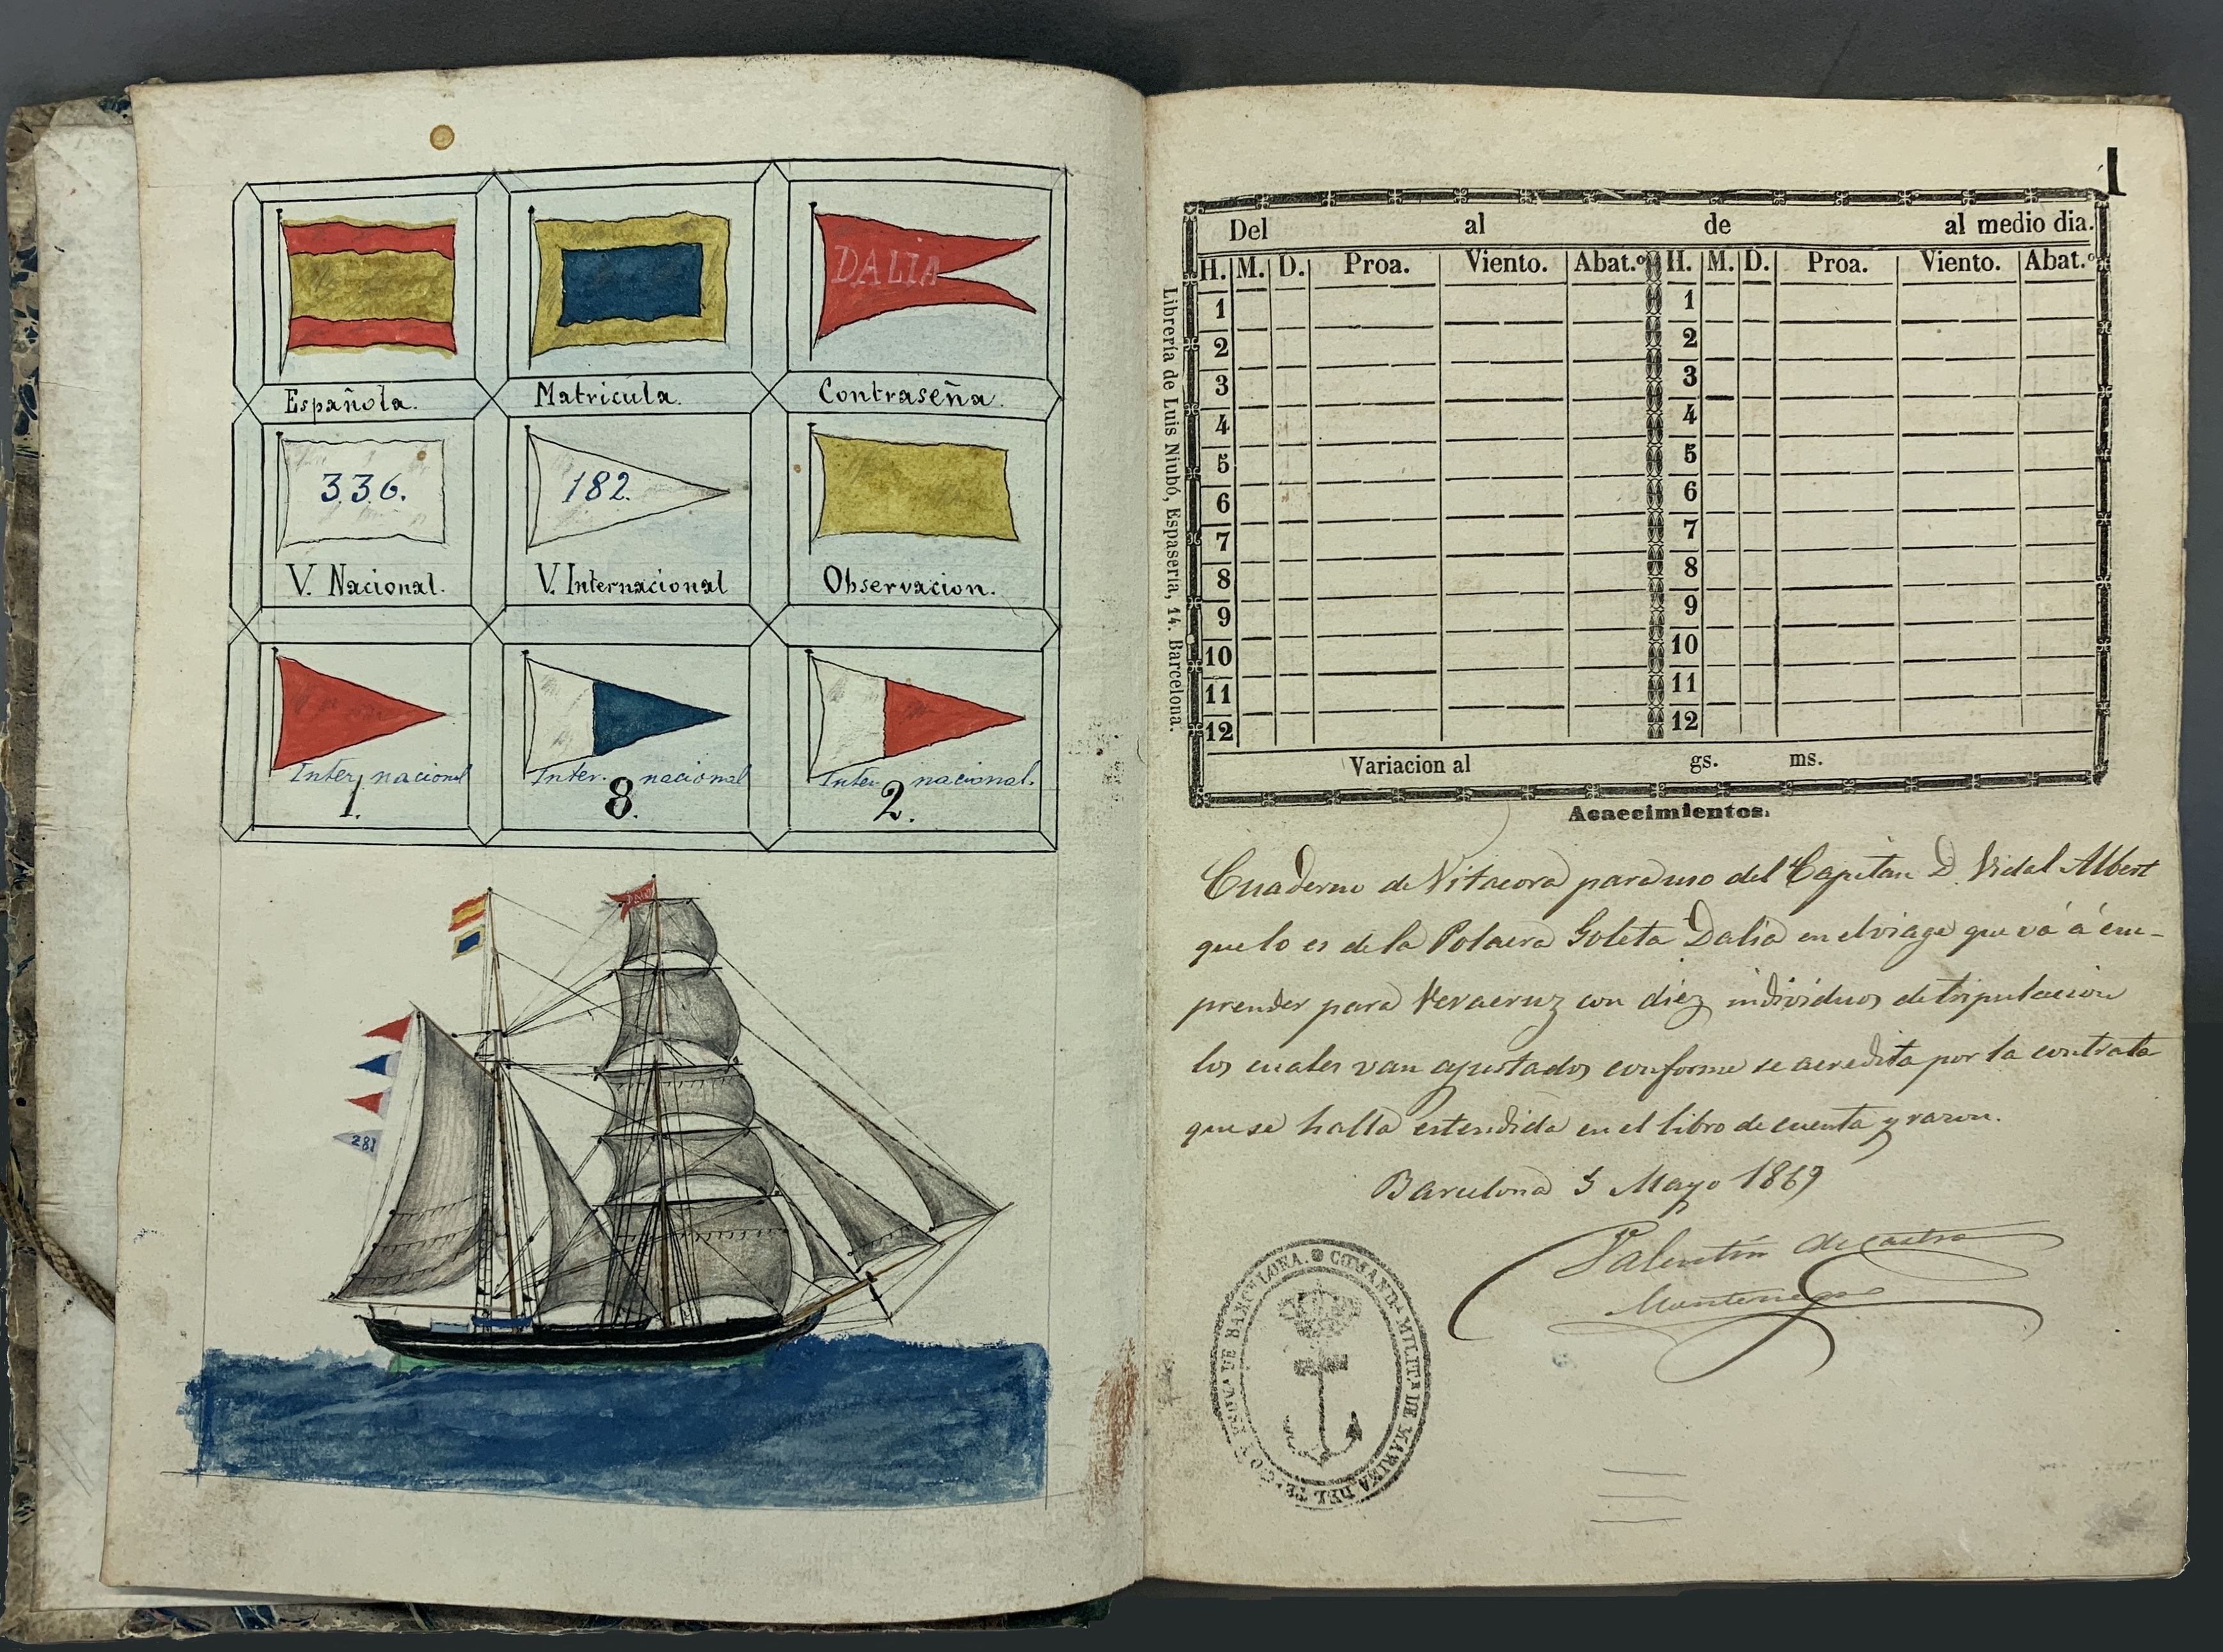 DALIA
Española.
Matricula.
Contraseña.
3.3.6.
182.
V. Nacional.
V. Internacional
Observacion.
Inter nacional
1.
Inter. nacional
8.
Inter nacional.
2.
281
1
Del al de al medio dia.
H. M. D. Proa. Viento. Abat.º H. M. D. Proa. Viento. Abat.º
1 1
2 2
3 3
4 4
5 5
6 6
7 7
8 8
9 9
10 10
11 11
12 12
Variacion al gs. ms.
Librería de Luis Niubó, Espasería, 14. Barcelona.
Acaecimientos.
Cuaderno de Vitacora para uso del Capitan D. Vidal Albert
que lo es de la Polacra Goleta Dalia en el viage que vá á em-
prender para Veracruz con diez individuos de tripulacion
los cuales van ajustados conforme se acredita por la contrata
que se halla estendida en el libro de cuenta y razon.
Barcelona 5 Mayo 1869
Valentin de Castro
Montenegro
COMAND.ª MILIT.R DE MARINA DEL